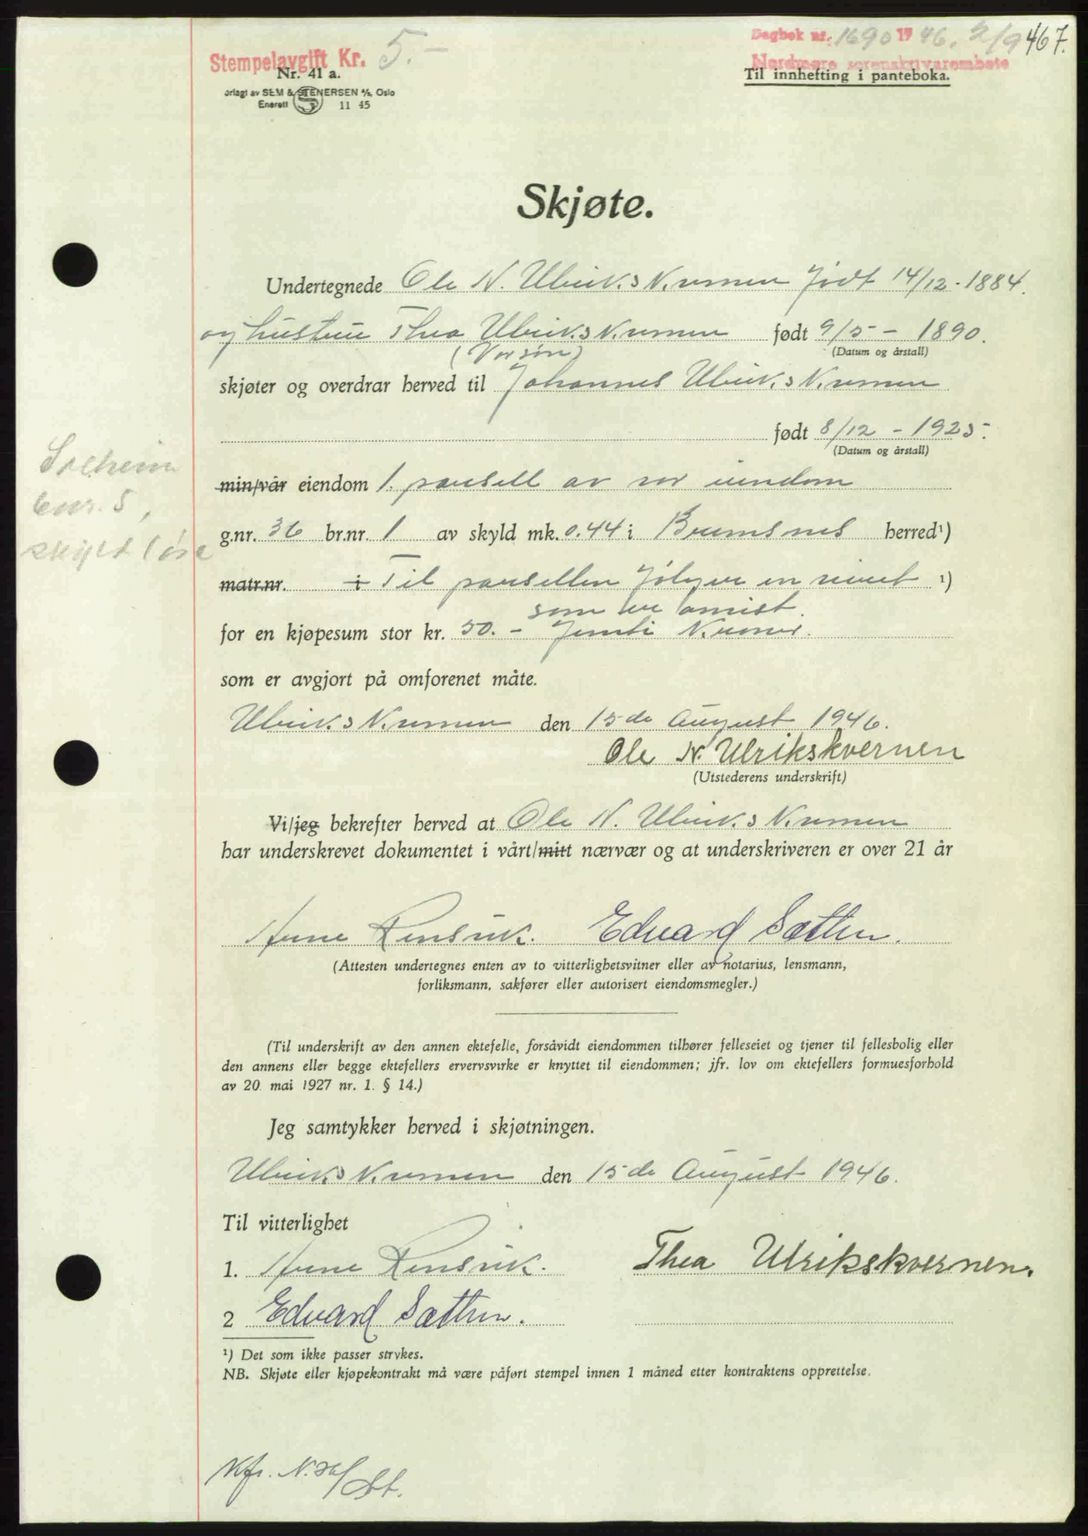 Stempelavgift Kr. 5.-
Dagbok nr. 1690 1946. 2/9 467.
Nordmøre sorenskriverembete
Nr. 41 a.
Til innhefting i panteboka.
orlagt av SEM & STENERSEN A/S, Oslo
Enerett S 11 45
Skjøte.
Undertegnede Ole N. Ulrikskvernen født 14/12-1884.
og hustru Thea Ulrikskvernen født 9/5-1890.
(Datum og årstall)
skjøter og overdrar herved til Johannes Ulrikskvernen
født 8/12-1925.
(Datum og årstall)
min/vår eiendom 1. parsell av vor eiendom
Solheim
bnr. 5,
g.nr. 36 br.nr. 1 av skyld mk. 0.44 i Bremsnes herred¹)
matr.nr. i Til parsellen følger en ¹)
som er
for en kjøpesum stor kr. 50.- femti kroner.
som er avgjort på omforenet måte.
Ulrikskvernen den 15de August 1946.
Ole N. Ulrikskvernen
(Utstederens underskrift)
Vi/jeg bekrefter herved at Ole N. Ulrikskvernen
har underskrevet dokumentet i vårt/mitt nærvær og at underskriveren er over 21 år
Arne Rensvik. Edvard Sættem.
(Attesten undertegnes enten av to vitterlighetsvitner eller av notarius, lensmann,
forliksmann, sakfører eller autorisert eiendomsmegler.)
(Til underskrift av den annen ektefelle, forsåvidt eiendommen tilhører felleseiet og tjener til fellesbolig eller
den annens eller begge ektefellers ervervsvirke er knyttet til eiendommen; jfr. lov om ektefellers formuesforhold
av 20. mai 1927 nr. 1. § 14.)
Jeg samtykker herved i skjøtningen.
Ulrikskvernen den 15de August 1946.
Til vitterlighet
1. Arne Rensvik. Thea Ulrikskvernen.
2 Edvard Sættem.
¹) Det som ikke passer strykes.
NB. Skjøte eller kjøpekontrakt må være påført stempel innen 1 måned etter kontraktens opprettelse.